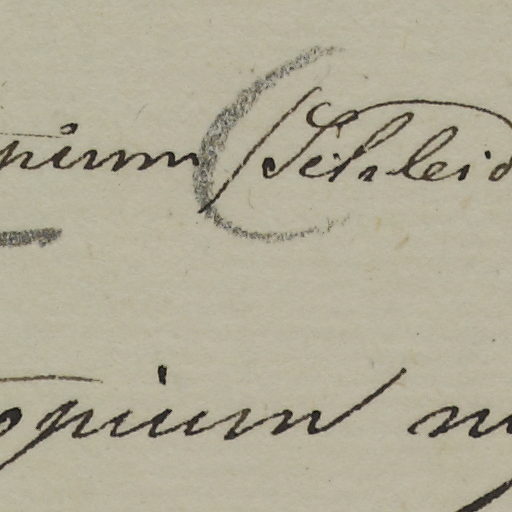 pium (Schleid
opium